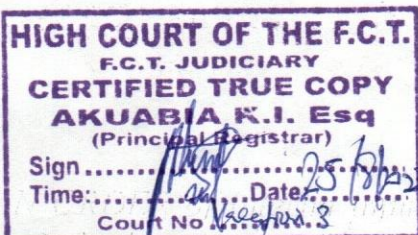 HIGH COURT OF THE F.C.T.
F.C.T. JUDICIARY
CERTIFIED TRUE COPY
AKUABIA K.I. Esq
(Principal Registrar)
Sign
Time: Date: 25/8/202
Court No Vacation 3